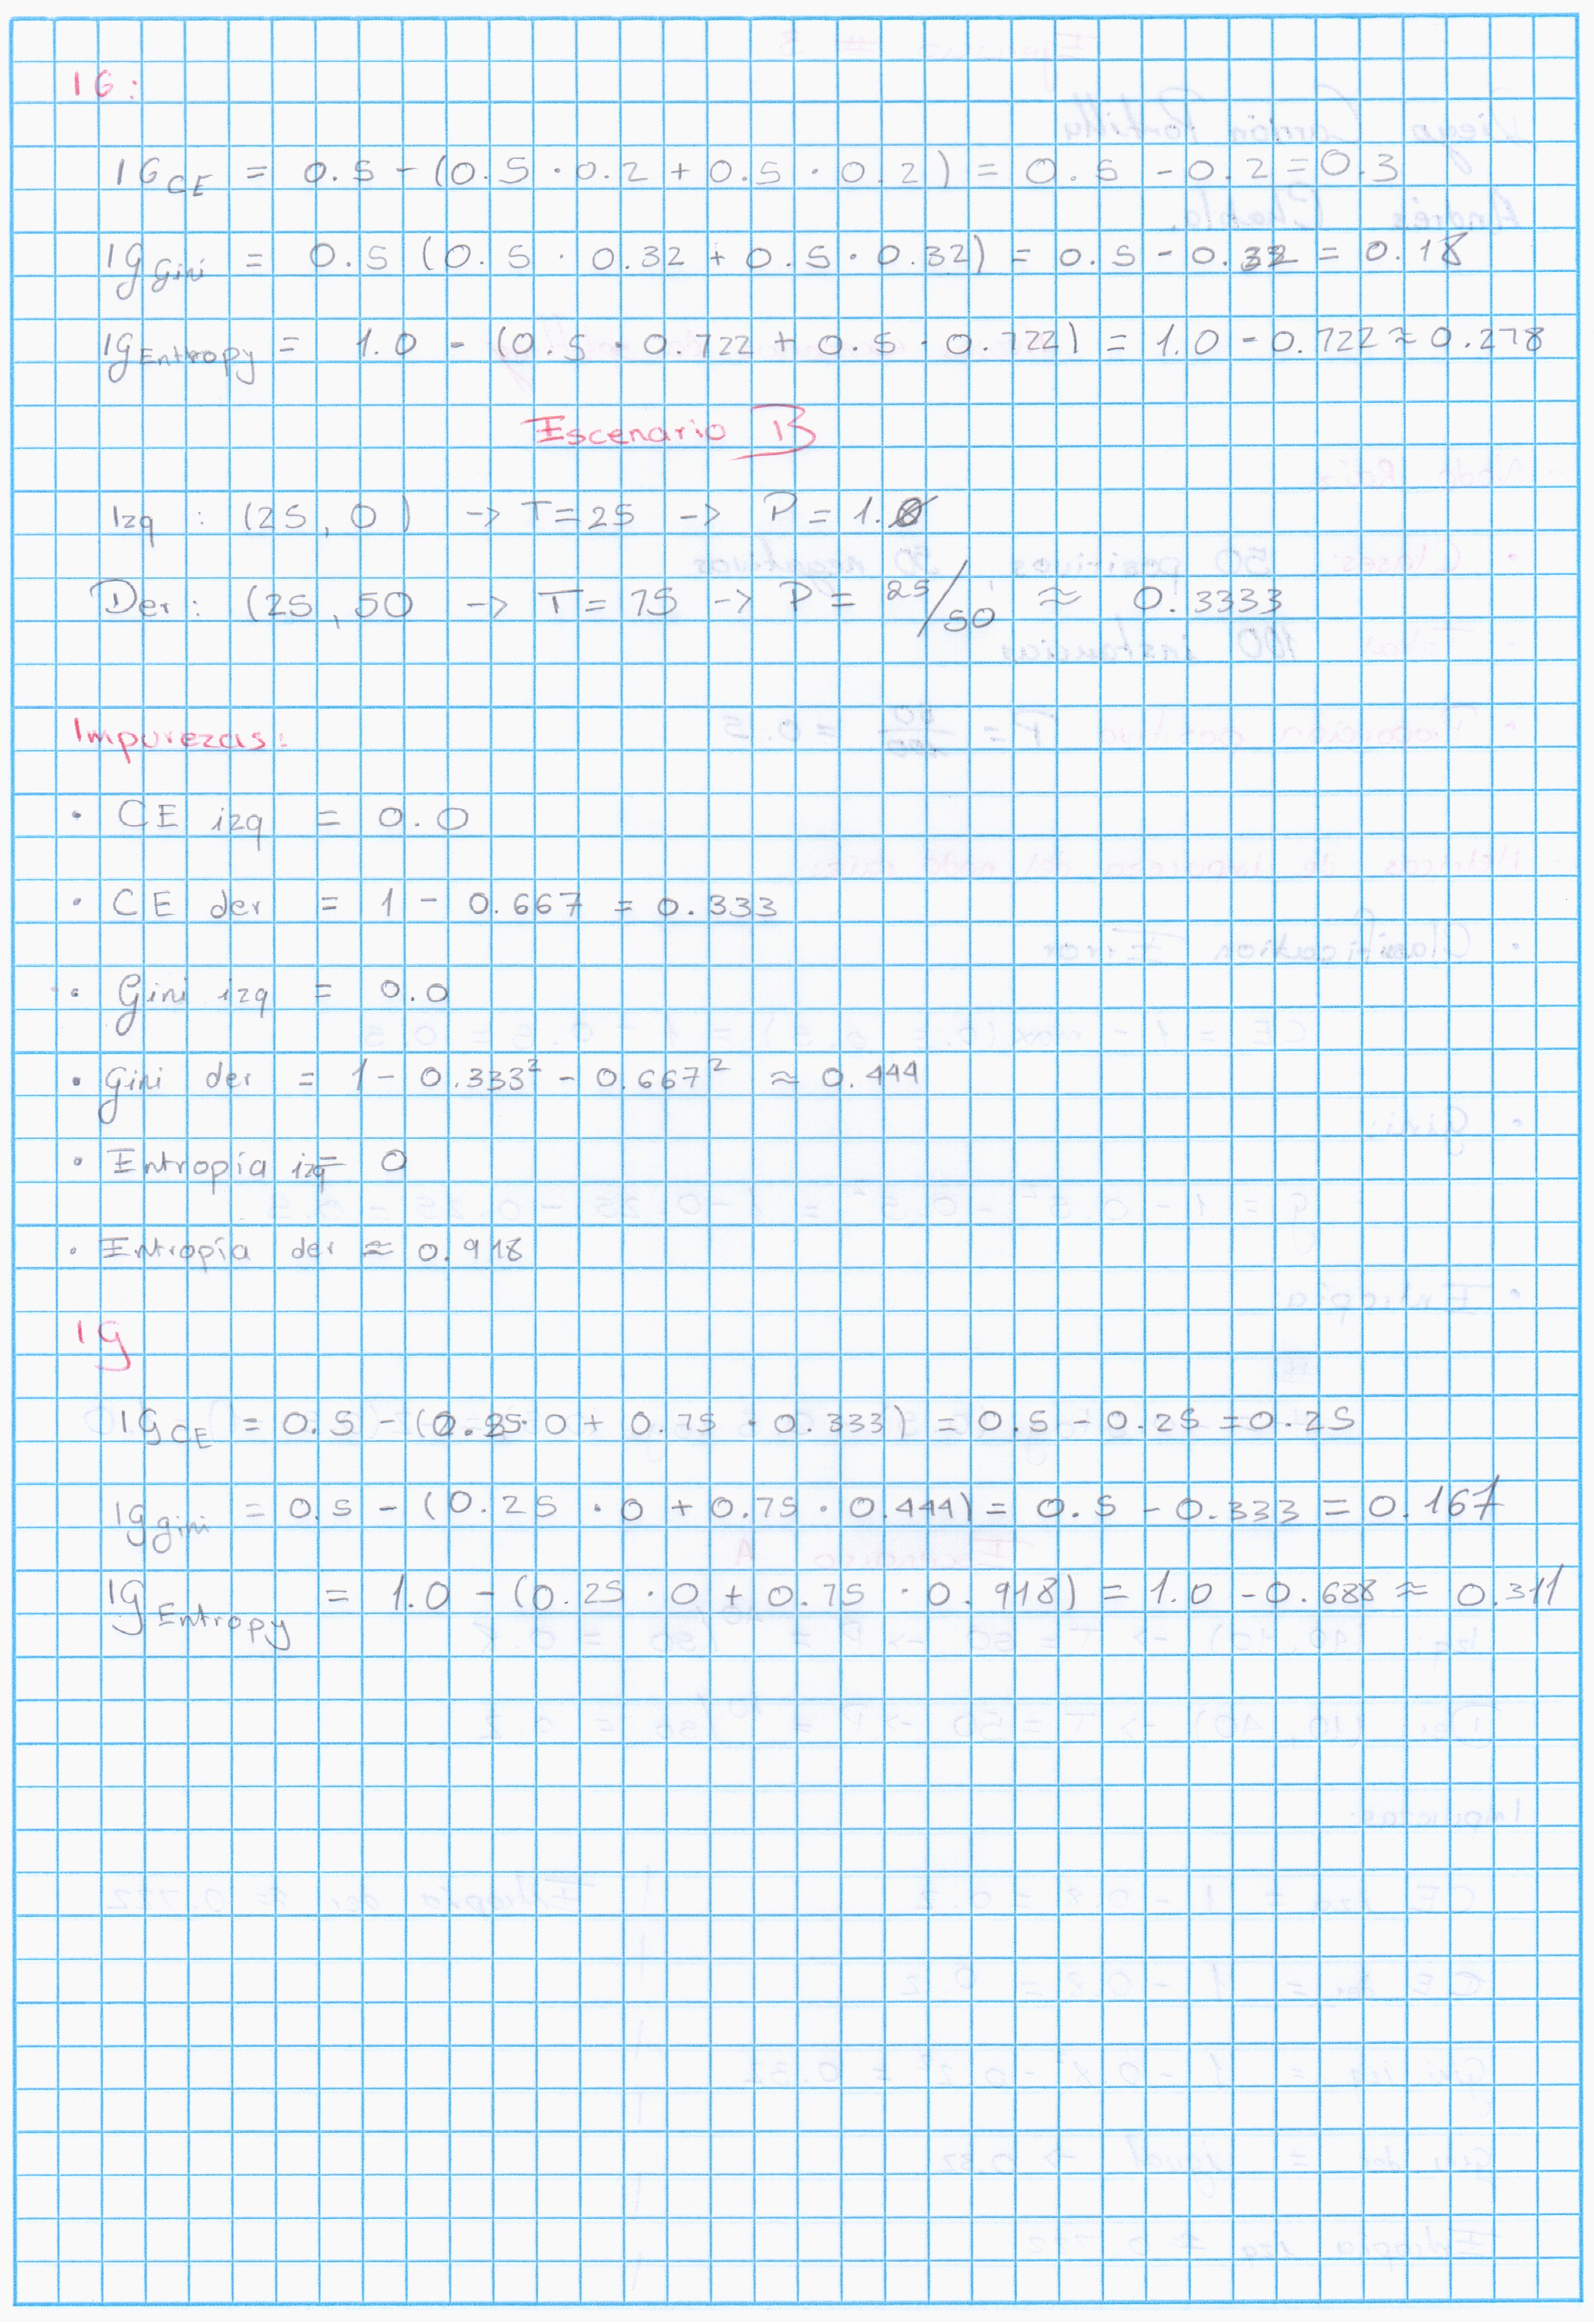 IG:
IG CE = 0.5 - (0.5 · 0.2 + 0.5 · 0.2) = 0.5 - 0.2 = 0.3
Ig Gini = 0.5 (0.5 · 0.32 + 0.5 · 0.32) = 0.5 - 0.32 = 0.18
Ig Entropy = 1.0 - (0.5 · 0.722 + 0.5 · 0.722) = 1.0 - 0.722 ≈ 0.278
Escenario B
Izq : (25, 0) -> T = 25 -> P = 1.0
Der : (25, 50 -> T = 75 -> P = 25/50 ≈ 0.3333
Impurezas:
· CE izq = 0.0
· CE der = 1 - 0.667 = 0.333
· Gini izq = 0.0
· Gini der = 1 - 0.333² - 0.667² ≈ 0.444
· Entropía izq = 0
· Entropía der ≈ 0.918
Ig
Ig CE = 0.5 - (0.25 · 0 + 0.75 · 0.333) = 0.5 - 0.25 = 0.25
Ig gini = 0.5 - (0.25 · 0 + 0.75 · 0.444) = 0.5 - 0.333 = 0.167
Ig Entropy = 1.0 - (0.25 · 0 + 0.75 · 0.918) = 1.0 - 0.688 ≈ 0.311